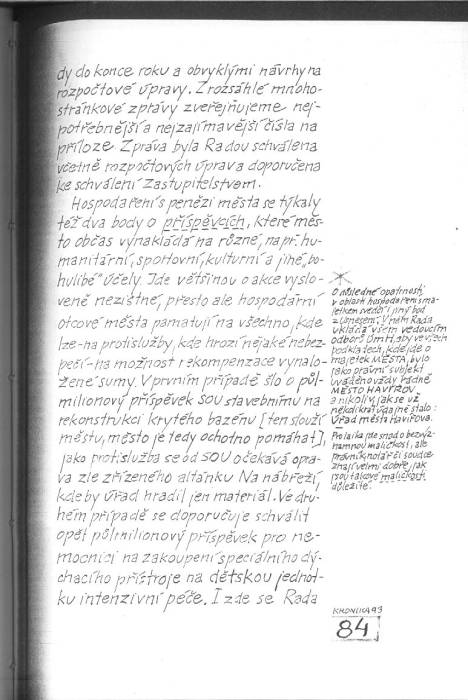 dy do konce roku a obvyklými návrhy na
rozpočtové úpravy. Z rozsáhlé mnoho-
stránkové zprávy zveřejňujeme nej-
potřebnější a nejzajímavější čísla na
příloze. Zpráva byla Radou schválena
včetně rozpočtových úprav a doporučena
ke schválení Zastupitelstvem.
Hospodaření s penězi města se týkaly
též dva body o příspěvcích, které měs-
to občas vynakládá na různé, např. hu-
manitární, sportovní, kulturní a jiné „bo-
hulibé" účely. Jde většinou o akce vyslo-
veně nezištné, přesto ale hospodární
otcové města pamatují na všechno, kde
lze - na protislužby, kde hrozí nějaké nebez-
pečí - na možnost rekompenzace vynalo-
žené sumy. V prvním případě šlo o půl-
milionový příspěvek SOU stavebnímu na
rekonstrukci krytého bazénu [ten slouží
městu, město je tedy ochotno pomáhat],
jako protislužba se od SOU očekává opra-
va zle zřízeného altánku Na nábřeží,
kde by úřad hradil jen materiál. Ve dru-
hém případě se doporučuje schválit
opět půlmilionový příspěvek pro ne-
mocnici na zakoupení speciálního dý-
chacího přístroje na dětskou jednot-
ku intenzivní péče. I zde se Rada
O důsledné opatrnosti
v oblasti hospodaření s ma-
jetkem svědčí i jiný bod
z Usnesení: V něm Rada
ukládá všem vedoucím
odborů ÚmH, aby ve všech
podkladech, kde jde o
majetek MĚSTA, bylo
jako právní subjekt
uváděno vždy řádné
MĚSTO HAVÍŘOV
a nikoliv, jak se už
několikrát údajně stalo:
Úřad města Havířova.
Pro laika jde snad o bezvýz-
namnou maličkost, ale
právník, notář či soudce
znají velmi dobře, jak
jsou takové maličkosti
důležité.
KRONIKA 93
84